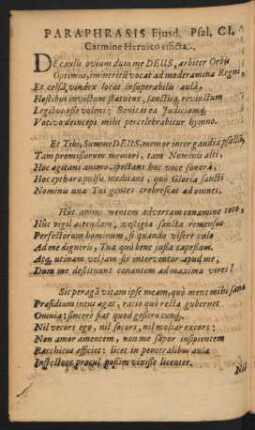 PARAPHRASIS Ejusd. Psal. CI.
Carmine Heroico efficta.
DE caulis ovium dum me DEUS, arbiter Orbis
Optimus, immeritū vocat ad moderamina Regni,
Et celsâ, vindex locat insuperabilis aulâ,
Hostibus invictum statuens, sanctisq; revinctum
Legibus esse volens: Bonitas ea Judiciumq;
Votivo deinceps mihi percelebrabitur hymno.
Et Tibi, Summe DEUS, memor inter gaudia psallā,
Tam promissorum memori, tam Nominis alti,
Hoc agitans animo, spectans hoc voce sonorâ,
Hoc cytharæ pulsu meditans; quò Gloria sancti
Nominis una Tui gentes crebrescat ad omnes.
Hûc animū mentem advertam conamine toto,
Hûc vigil attendam, vestigia sancta remensus
Perfectorum hominum, si quando visere cælo
Ad me digneris, Tua quò bene jussa capessam.
Atq; utinam veljam sis interventor apud me,
Dum me destituunt conantem ad maxima vires!
Sic peragā vitam ipse meam, quò mens mihi sana
Præsidium intus agat, ratio quò recta gubernet
Omnia; sincerè fiat quod gessero cunq;.
Nil vecors ego, nil socors, nil moliar excors:
Non amor amentem, non me sopor insipientem
Bacchicus efficiet: licet in penetralibus aulæ
Inspectore procul possim vixisse licenter.
Nil